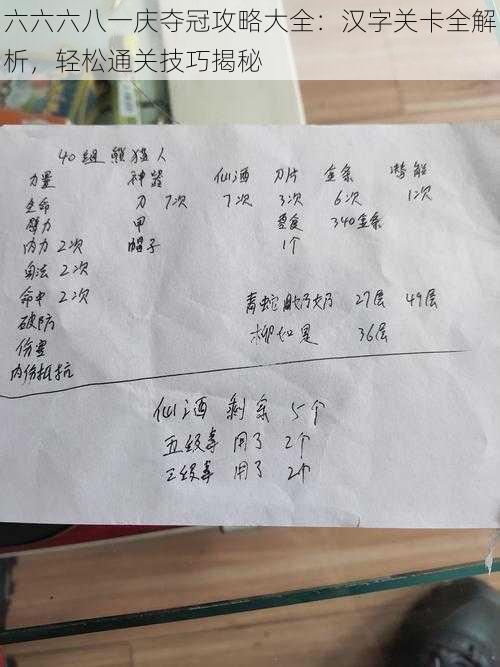 六六六八一庆夺冠攻略大全：汉字关卡全解
析，轻松通关技巧揭秘
40组 熊猫人
力量 神器 仙酒 刀片 金条 潜能
生命 刀 7次 7次 3次 6次 1次
臂力 甲 要食 340金条
内力 2次 帽子 1个
身法 2次
命中 2次 青蛇 毗乃奶 27层 49层
破防 柳如是 36层
伤害
内伤抵抗
仙酒 剩余 5个
五级拿 用了 2个
三级拿 用了 2个